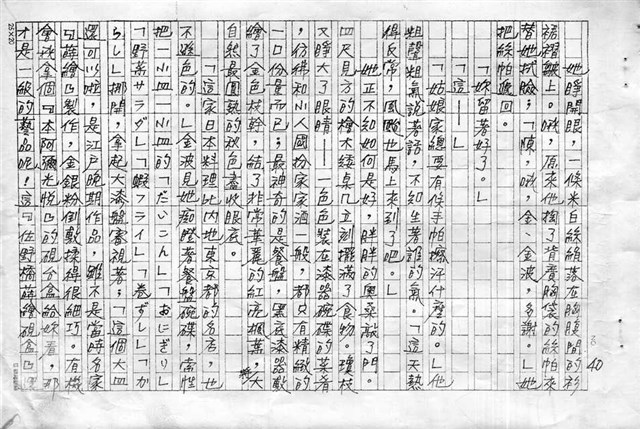 她睜開眼，一條米白絲絹落在胸膜間的衫
褶襇皺上。哦，原來他掏了背賣胸袋的絲帕來
替她拭臉。「陳，哦，金、金波，多謝。」她
把絲帕遞回。
「妳留著好了。」
「這——」
「姑娘家總要有條手帕擦汗什麼的。」他
粗聲粗氣說著話，不知生著誰的氣。「這天熱
得反常，風颱也馬上來到了吧。」
她正不知如何是好，胖胖的奧桑敲了門。
四尺見方的檜木矮桌几立刻擺滿了食物。瓊枝
又睜大了眼睛——一色色裝在漆器碗碟的菜肴
，彷彿知小人國扮家家酒一般，都只有精緻的
一口份量而已；最神奇的是餐盤，黑底漆器敷
繪了金色枝幹，結了非常華麗的紅底楓葉，大
自然最圓熟的秋色盡收眼底。
「這家日本料理比內地東京都的名店，也
不遜色的。」金波見她癡瞪著餐盤碗碟，索性
把一小皿一小皿的「だいこん」「おにぎり」
「野菜サラダ」「蝦フライ」「卷ずし」「か
らし」挪開，拿起大漆盤審視著，「這個大皿
還可以啦，是江戶晚期作品，雖不是當時名家
的蒔繪製作，金銀粉倒敷揉得很細巧。有機
會我拿個日本阿彌光悅的硯台盒給妳看，那
才是一級的藝品呢！這『佐野橋蒔繪硯盒』
40
25×20